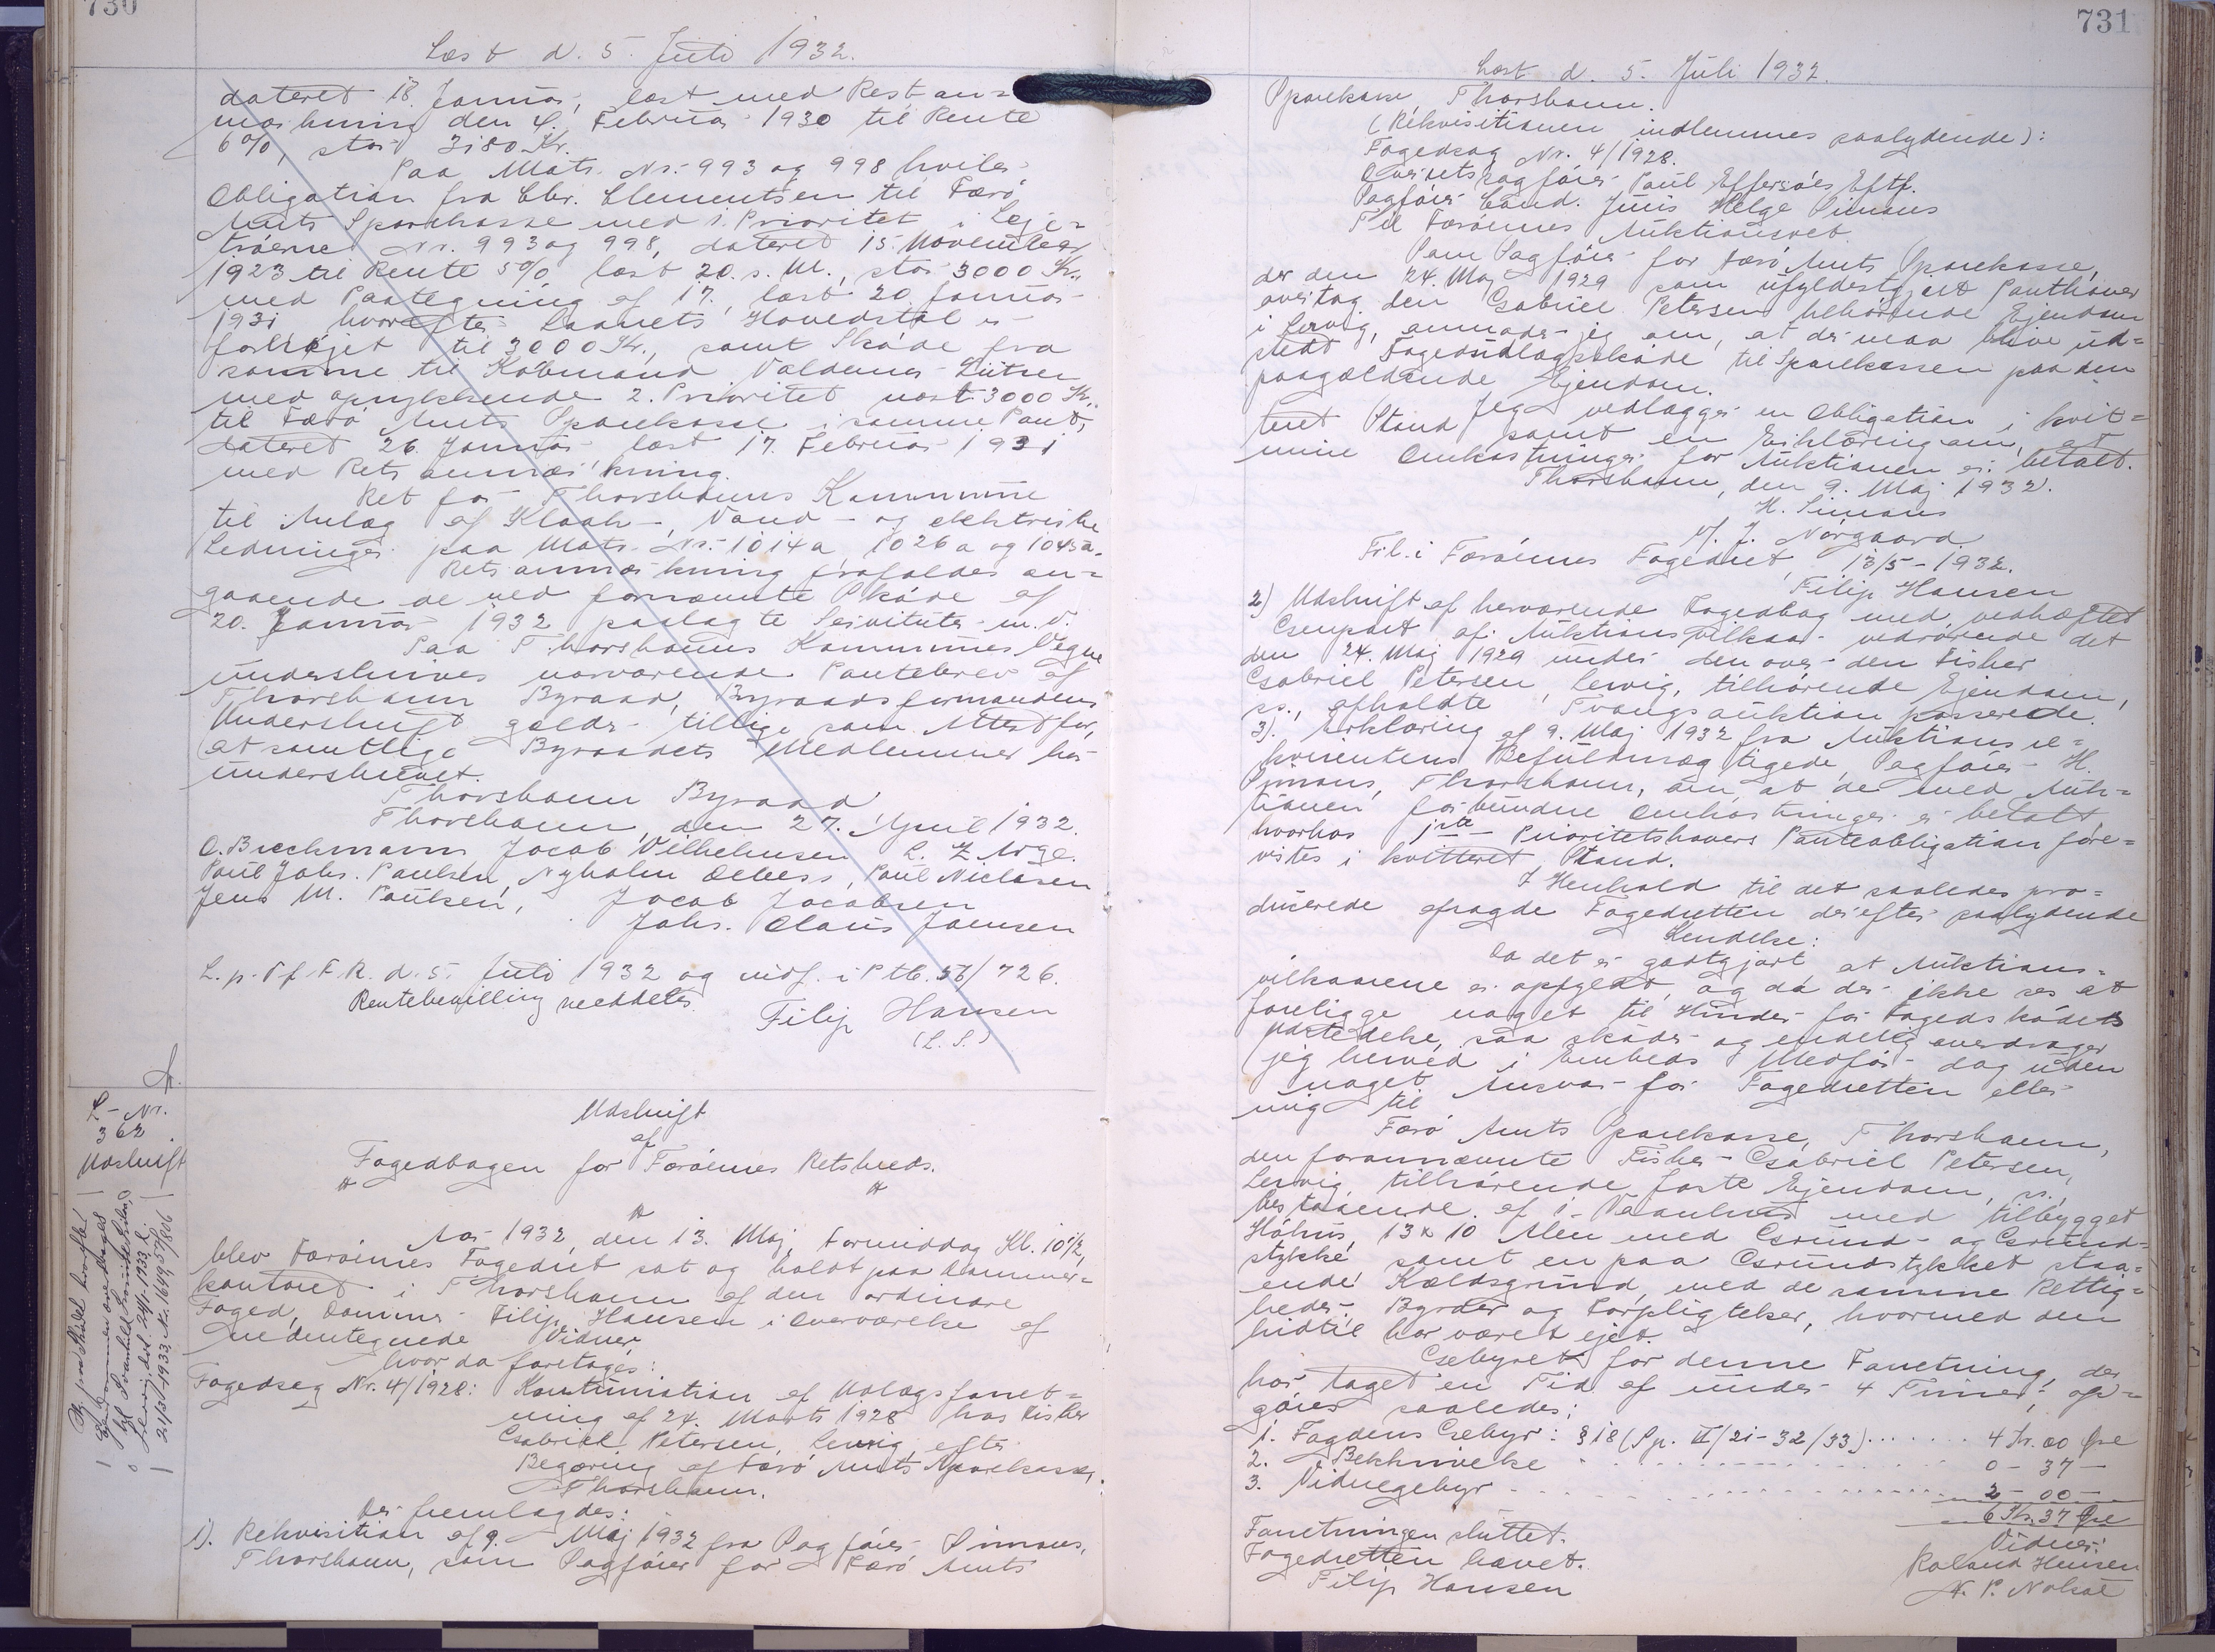 730
Læst d. 5. Juli 1932.
dateret 18. Januar, læst med Retsan=
mærkning den 4. Februar 1930 til Rente
6%, stor 3180 Kr.
Paa Matr. Nr. 993 og 998 hviler
Obligation fra Chr. Clementsen til Færø
Amts Sparekasse med 1. Prioritet i Leje=
trøerne Nr. 993 og 998, dateret 15. November
1923 til Rente 5%, læst 20. s. M., stor 3000 Kr.,
med Paategning af 17., læst 20. Januar
1931 hvorefter Laanets Hovedstol er
forhøjet til 3000 Kr., samt Skøde fra
samme til Købmand Valdemar Lützen
med oprykkende 2. Prioritet næst 3000 Kr.
til Færø Amts Sparekasse i samme Pant,
dateret 26. Januar læst 17. Februar 1931
med Retsanmærkning.
Ret for Thorshavns Kommune
til Anlæg af Kloak-, Vand- og elektriske
Ledninger paa Matr. Nr. 1014a, 1026a og 1045a.
Retsanmærkning frafaldes an=
gaaende de ved fornævnte Skøde af
20. Januar 1932 paalagte Servituter m.v.
Paa Thorshavns Kommunes Vegne
underskrives nærværende Pantebrev af
Thorshavn Byraad, Byraadsformandens
Underskrift gælder tillige som Attest for,
at samtlige Byraadets Medlemmer har
underskrevet.
Thorshavn Byraad
Thorshavn, den 27. April 1932.
O. Bieckmann Jacob Vilhelmsen L. Z. Arge.
Poul Johs. Paulsen, Nyholm Debess, Poul Niclasen
Jens M. Poulsen, Jacob Jacobsen
Johs. Olaus Joensen
L. p. T. f. F. R. d. 5. Juli 1932 og indf. i Ptb. 56/726.
Rentebevilling meddeles.
Filip Hansen
(L. S.)
L-Nr.
362.
Udskrift
Udskrift
af
Fogedbogen for Færøernes Retskreds.
Aar 1932, den 13. Maj, Formiddag Kl. 10½,
blev Færøernes Fogedret sat og holdt paa Dommer=
kontoret i Thorshavn af den ordinære
Foged, Dommer Filip Hansen i Overværelse af
undertegnede Vidner,
hvor da foretoges:
Fogedsag Nr. 4/1928: Kontinuation af Udlægsforret=
ning af 24. Marts 1928 hos Fisker
Gabriel Petersen, Lervig, efter
Begæring af Færø Amts Sparekasse,
Thorshavn.
Der fremlagdes:
1). Rekvisition af 9. Maj 1932 fra Sagfører Simons,
Thorshavn, som Sagfører for Færø Amts
731
Læst d. 5. Juli 1932.
Sparekasse, Thorshavn.
(Rekvisitionen indlemmes saalydende):
Fogedsag Nr. 4/1928.
Overretssagfører Poul Effersøes Eftf.
Sagfører Cand. Juris Helge Simons
Til Færøernes Auktionsret.
Som Sagfører for Færø Amts Sparekasse,
der den 24. Maj 1929 som ufyldestgjort Panthaver
overtog den Gabriel Petersen tilhørende Ejendom
i Lervig, anmoder jeg om, at der maa blive ud=
stedt Fogedudlægsskøde til Sparekassen paa den
paagældende Ejendom.
Jeg vedlægger en Obligation i kvit=
teret Stand samt en Erklæring om, at
mine Omkostninger for Auktionen er betalt.
Thorshavn, den 9. Maj 1932.
H. Simons
M. J. Nørgaard
Frl. i Færøernes Fogedret, 13/5-1932.
Filip Hansen
2) Udskrift af herværende Fogedbog med vedhæftet
Genpart af Auktionsvilkaar vedrørende det
den 24. Maj 1929 under den over den Fisker
Gabriel Petersen, Lervig, tilhørende Ejendom,
ss., afholdte Tvangsauktion passerede.
3). Erklæring af 9. Maj 1932 fra Auktionsre=
kvirentens Befuldmægtigede, Sagfører H.
Simons, Thorshavn, om, at de med Auk=
tionen forbundne Omkostninger er betalt,
hvorhos 1ste Prioritetshavers Panteobligation fore=
vistes i kvitteret Stand.
I Henhold til det saaledes pro=
ducerede afsagde Fogedretten derefter saalydende
Kendelse:
Da det er godtgjort at Auktions=
vilkaarene er opfyldt, og da der ikke ses at
foreligge noget til Hinder for Fogedskødets
Udstedelse, saa skøder og endelig overdrager
jeg herved i Embeds Medfør dog uden
noget Ansvar for Fogedretten eller
mig til
Færø Amts Sparekasse, Thorshavn,
den forannævnte Fisker Gabriel Petersen,
Lervig, tilhørende faste Ejendom, ss.,
bestaaende af 1 Vaanhus med tilbygget
Høhus, 13 x 10 Alen med Grund- og Grund=
stykke samt en paa Grundstykket staa=
ende Kældsgrund, med de samme Rettig=
heder, Byrder og Forpligtelser, hvormed den
hidtil har været ejet.
Gebyret for denne Forretning, der
har taget en Tid af under 4 Timer, op=
gøres saaledes:
1. Fogdens Gebyr: § 18 (Sp. II/21-32/33) ...... 4 Kr. 00 Øre
2. Beskrivelse ...... 0 - 37 -
3. Vidnegebyr ...... 2 - 00 -
6 Kr. 37 Øre
Forretningen sluttet.
Fogedretten hævet.
Filip Hansen
Vidner:
Roland Hansen
N. P. Nolsøe